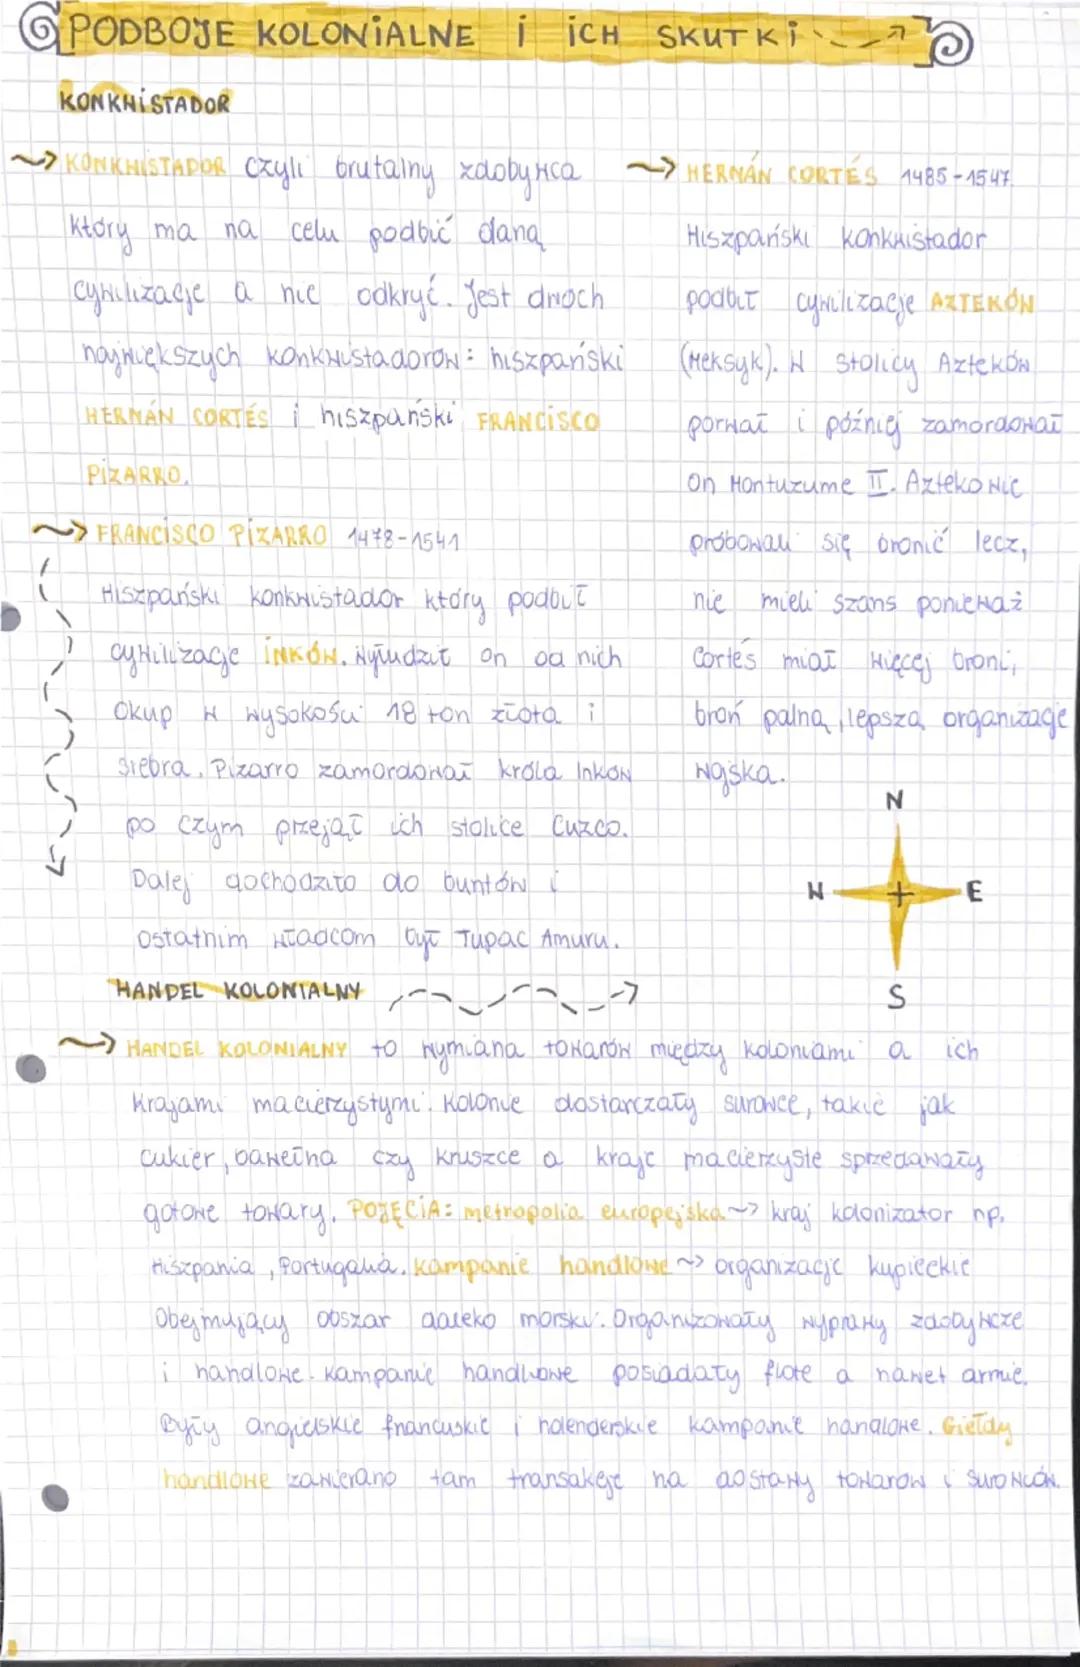 PODBOJE KOLONIALNE i iCH SKUTKi
KONKWiSTADOR
KONKWISTADOR czyli brutalny zdobywca
który ma na celu podbić daną
cywilizacje a nie odkryć. Jest dwóch
największych konkwistadorów: hiszpański
HERNÁN CORTÉS i hiszpański FRANCISCO
PIZARRO.
FRANCISCO PIZARRO 1478-1541
Hiszpański konkwistador który podbił
cywilizacje INKÓW. Wyłudził on od nich
okup w wysokości 18 ton złota i
srebra. Pizarro zamordował króla Inków
po czym przejął ich stolice Cuzco.
Dalej dochodziło do buntów i
ostatnim władcom był Tupac Amuru.
HERNÁN CORTÉS 1485-1547.
Hiszpański konkwistador
podbił cywilizacje AZTEKÓW
(Meksyk). W stolicy Azteków
porwał i później zamordował
on Montuzume II. Aztekowie
próbowali się bronić lecz,
nie mieli szans ponieważ
Cortés miał więcej broni,
broń palną, lepszą organizacje
wojska.
N
W E
S
HANDEL KOLONIALNY
HANDEL KOLONIALNY to wymiana towarów między koloniami a ich
krajami macierzystymi. Kolonie dostarczały surowce, takie jak
cukier, bawełna czy kruszce a kraje macierzyste sprzedawały
gotowe towary. POJĘCIA: metropolia europejska ~> kraj kolonizator np.
Hiszpania, Portugalia. kampanie handlowe ~> organizacje kupieckie
Obejmujący obszar daleko morski. Organizowały wyprawy zdobywcze
i handlowe. kampanie handlowe posiadały flote a nawet armie.
Były angielskie francuskie i holenderskie kampanie handlowe. Giełdy
handlowe zawierano tam transakcje na dostawy towarów i surowców.